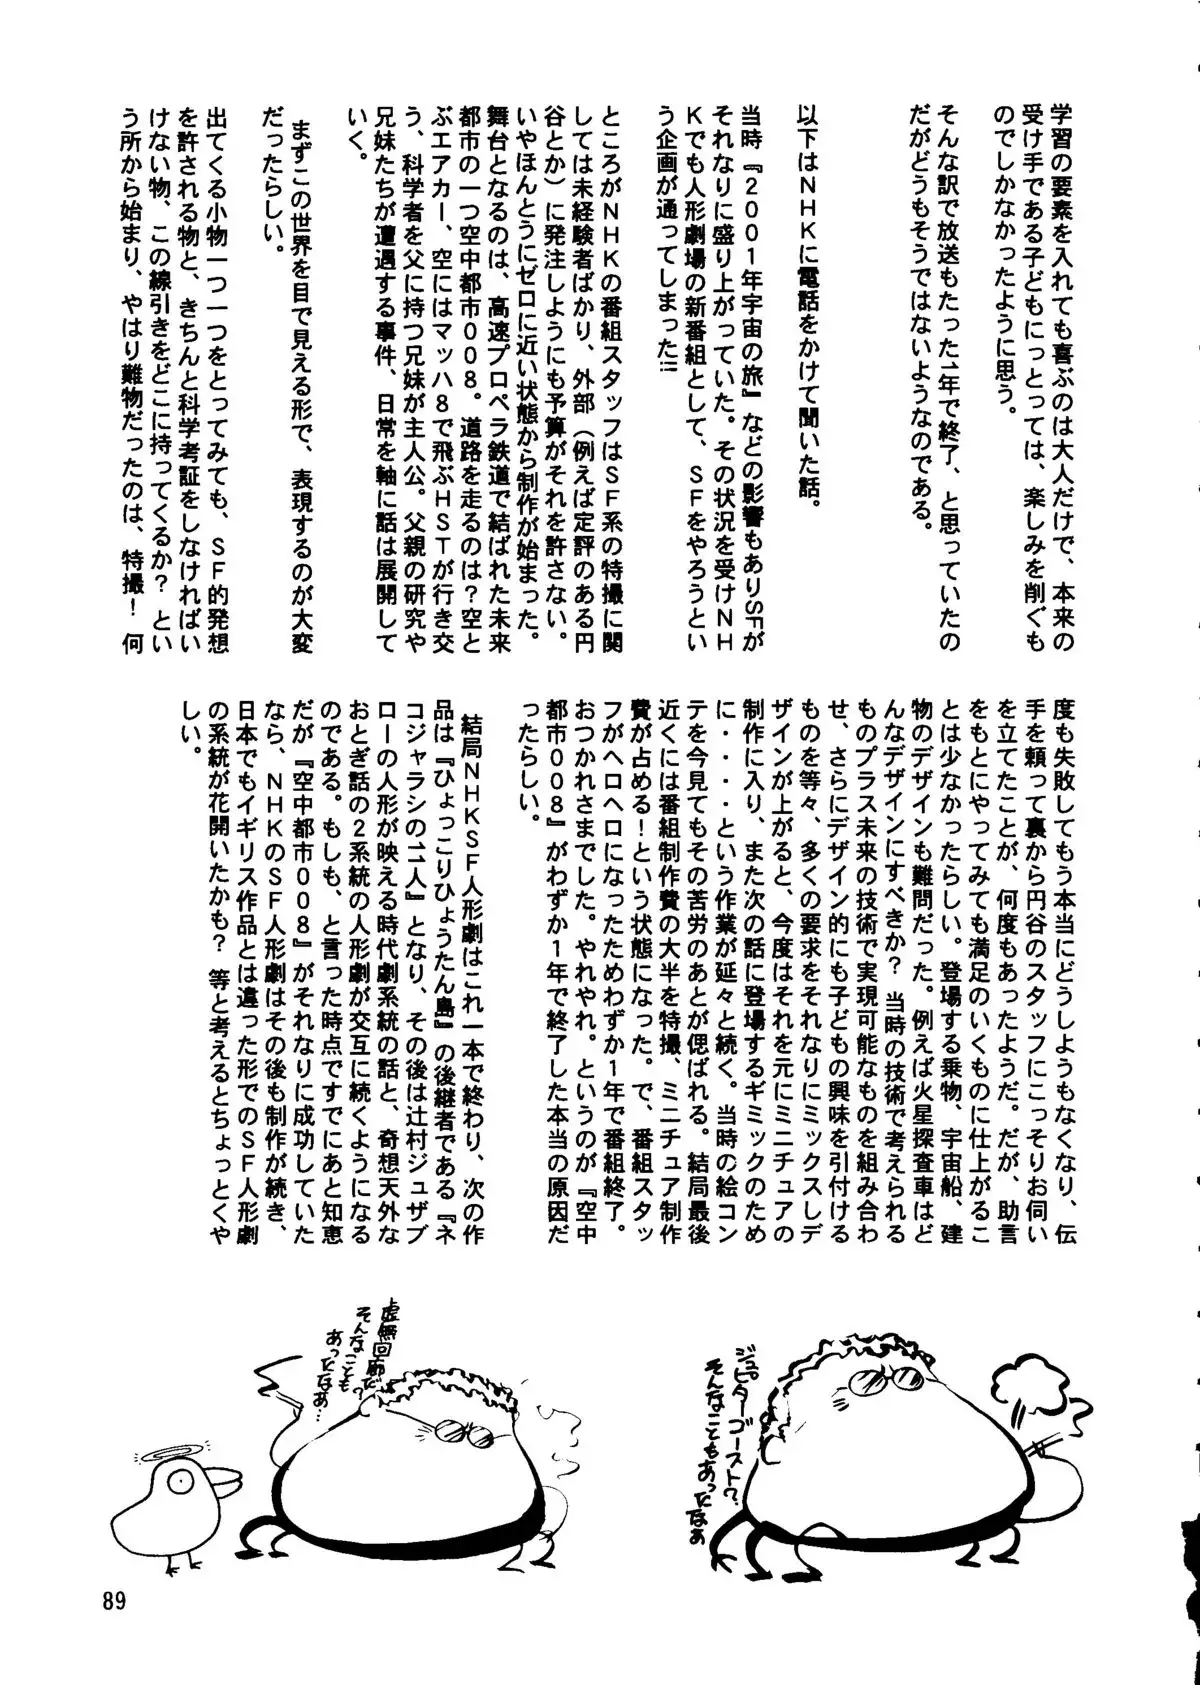 学習の要素を入れても喜ぶのは大人だけで、本来の
受け手である子どもにっとっては、楽しみを削ぐも
のでしかなかったように思う。
そんな訳で放送もたった1年で終了、と思っていたの
だがどうもそうではないようなのである。
以下はNHKに電話をかけて聞いた話。
当時『2001年宇宙の旅』などの影響もありSFが
それなりに盛り上がっていた。その状況を受けNH
Kでも人形劇場の新番組として、SFをやろうとい
う企画が通ってしまった!!
ところがNHKの番組スタッフはSF系の特撮に関
しては未経験者ばかり、外部(例えば定評のある円
谷とか)に発注しようにも予算がそれを許さない。
いやほんとうにゼロに近い状態から制作が始まった。
舞台となるのは、高速プロペラ鉄道で結ばれた未来
都市の一つ空中都市008。道路を走るのは?空と
ぶエアカー、空にはマッハ8で飛ぶHSTが行き交
う、科学者を父に持つ兄妹が主人公。父親の研究や
兄妹たちが遭遇する事件、日常を軸に話は展開して
いく。
まずこの世界を目で見える形で、表現するのが大変
だったらしい。
出てくる小物一つ一つをとってみても、SF的発想
を許される物と、きちんと科学考証をしなければい
けない物、この線引きをどこに持ってくるか?とい
う所から始まり、やはり難物だったのは、特撮!何
度も失敗してもう本当にどうしようもなくなり、伝
手を頼って裏から円谷のスタッフにこっそりお伺い
を立てたことが、何度もあったようだ。だが、助言
をもとにやってみても満足のいくものに仕上がるこ
とは少なかったらしい。登場する乗物、宇宙船、建
物のデザインも難問だった。例えば火星探査車はど
んなデザインにすべきか?当時の技術で考えられる
ものプラス未来の技術で実現可能なものを組み合わ
せ、さらにデザイン的にも子どもの興味を引付ける
ものを等々、多くの要求をそれなりにミックスしデ
ザインが上がると、今度はそれを元にミニチュアの
制作に入り、また次の話に登場するギミックのため
に・・・・という作業が延々と続く。当時の絵コン
テを今見てもその苦労のあとが偲ばれる。結局最後
近くには番組制作費の大半を特撮、ミニチュア制作
費が占める!という状態になった。で、番組スタッ
フがヘロヘロになったためわずか1年で番組終了。
おつかれさまでした。やれやれ。というのが『空中
都市008』がわずか1年で終了した本当の原因だ
ったらしい。
結局NHKSF人形劇はこれ一本で終わり、次の作
品は『ひょっこりひょうたん島』の後継者である『ネ
コジャラシの11人』となり、その後は辻村ジュザブ
ローの人形が映える時代劇系統の話と、奇想天外な
おとぎ話の2系統の人形劇が交互に続くようになる
のである。もしも、と言った時点ですでにあと知恵
だが『空中都市008』がそれなりに成功していた
なら、NHKのSF人形劇はその後も制作が続き、
日本でもイギリス作品とは違った形でのSF人形劇
の系統が花開いたかも?等と考えるとちょっとくや
しい。
ジュピターゴースト?
そんなこともあったなぁ
虚無回廊だ?
そんなことも
あったなあ…
89